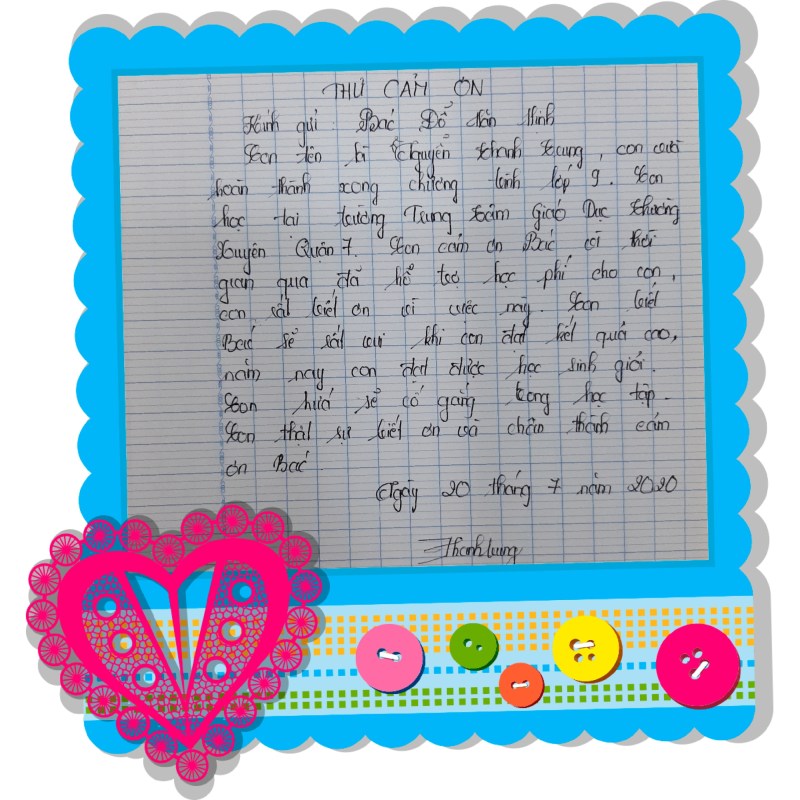 THƯ CẢM ƠN
Kính gửi Bác Đỗ Tấn Thịnh
Con tên là Nguyễn Thanh Trung, con vừa
hoàn thành xong chương trình lớp 9. Con
học tại trường Trung Tâm Giáo Dục Thường
Xuyên Quận 7. Con cảm ơn Bác vì thời
gian qua đã hỗ trợ học phí cho con,
con rất biết ơn vì việc này. Con biết
Bác sẽ rất vui khi con đạt kết quả cao,
năm nay con đạt được học sinh giỏi.
Con hứa sẽ cố gắng trong học tập.
Con thật sự biết ơn và chân thành cảm
ơn Bác
Ngày 20 tháng 7 năm 2020
Thanh trung